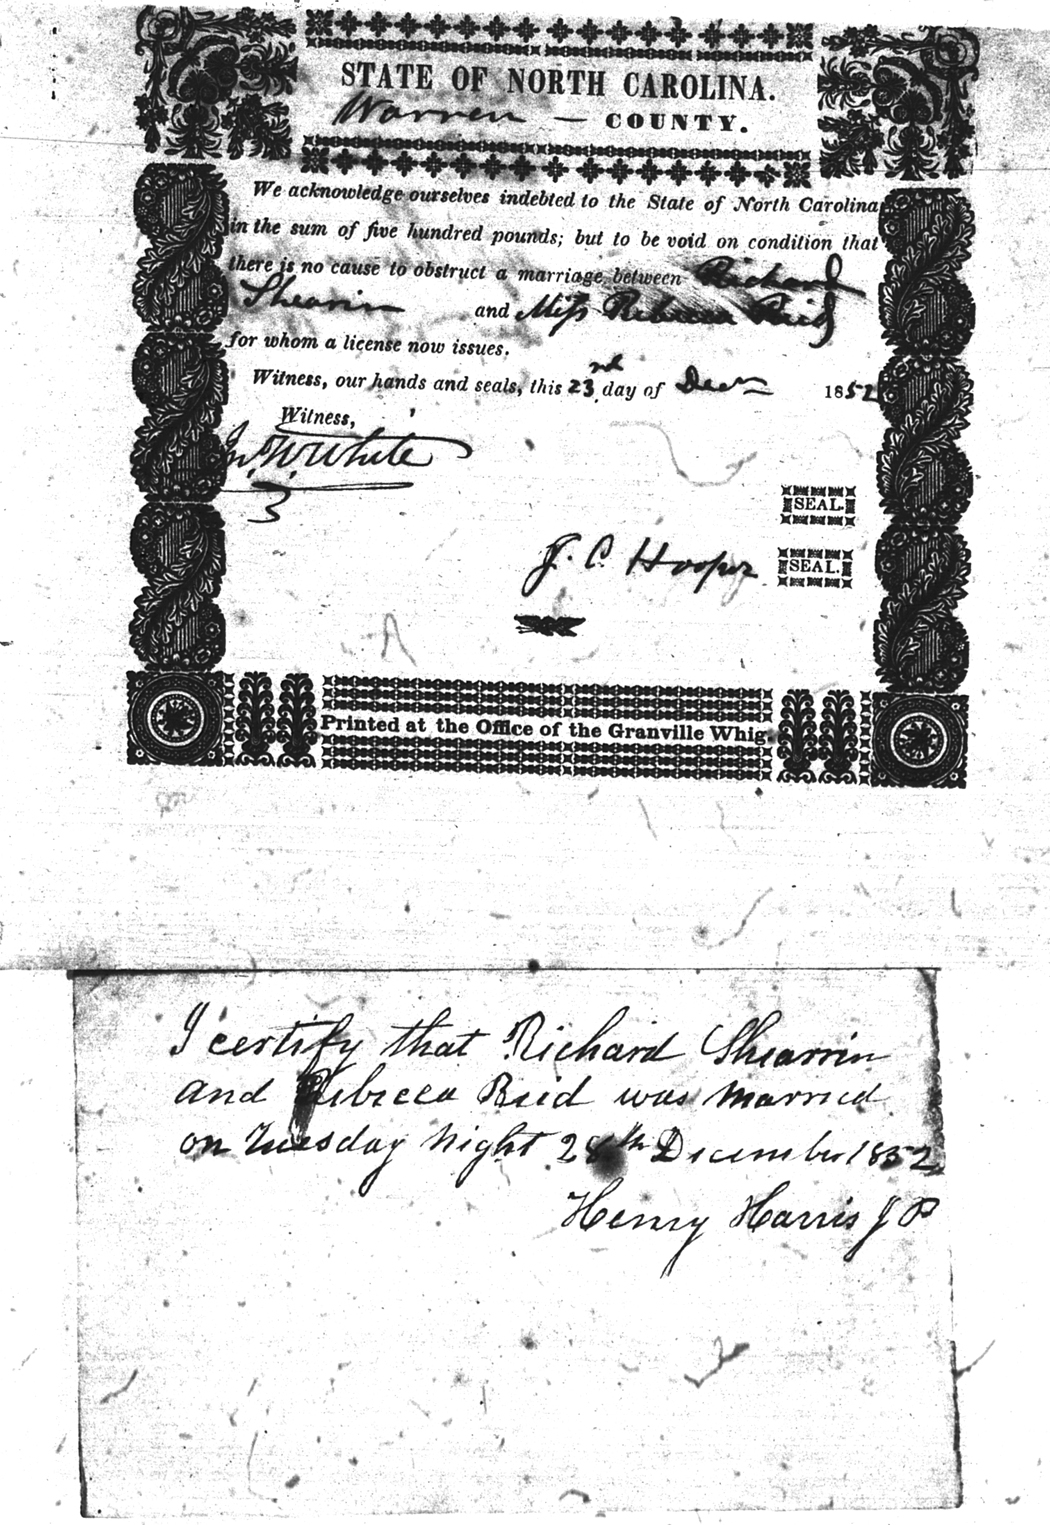 STATE OF NORTH CAROLINA.
Warren — COUNTY.
We acknowledge ourselves indebted to the State of North Carolina
in the sum of five hundred pounds; but to be void on condition that
there is no cause to obstruct a marriage between Richard
Shearin and Miss Rebecca Reid
for whom a license now issues.
Witness, our hands and seals, this 23nd day of Decr 1852
Witness,
Jn. W. White
SEAL.
J. C. Hooper SEAL.
Printed at the Office of the Granville Whig.
I certify that Richard Shearrin
and Rebecca Reid was married
on Tuesday night 28th December 1852
Henry Harris J P